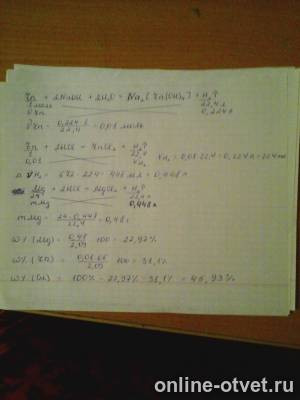 Zn + 2NaOH + 2H2O = Na2[Zn(OH)4] + H2↑
22,4 л
0,224 л
νZn = 0,224 л / 22,4 = 0,01 моль
Zn + 2HCl = ZnCl2 + H2↑
0,01 22,4
xH2 = 0,01·22,4 = 0,224 л = 224 мл
νH2 = 672 - 224 = 448 мл = 0,448 л
Mg + 2HCl = MgCl2 + H2↑
24 22,4 л
mMg 0,448 л
mMg = 24·0,448 / 22,4 = 0,48 г
W% (Mg) = 0,48 / 2,09 100 = 22,97%
W% (Zn) = 0,01·65 / 2,09 100 = 31,1%
W% (Cu) = 100% - 22,97% - 31,1% = 45,93%
online-otvet.ru